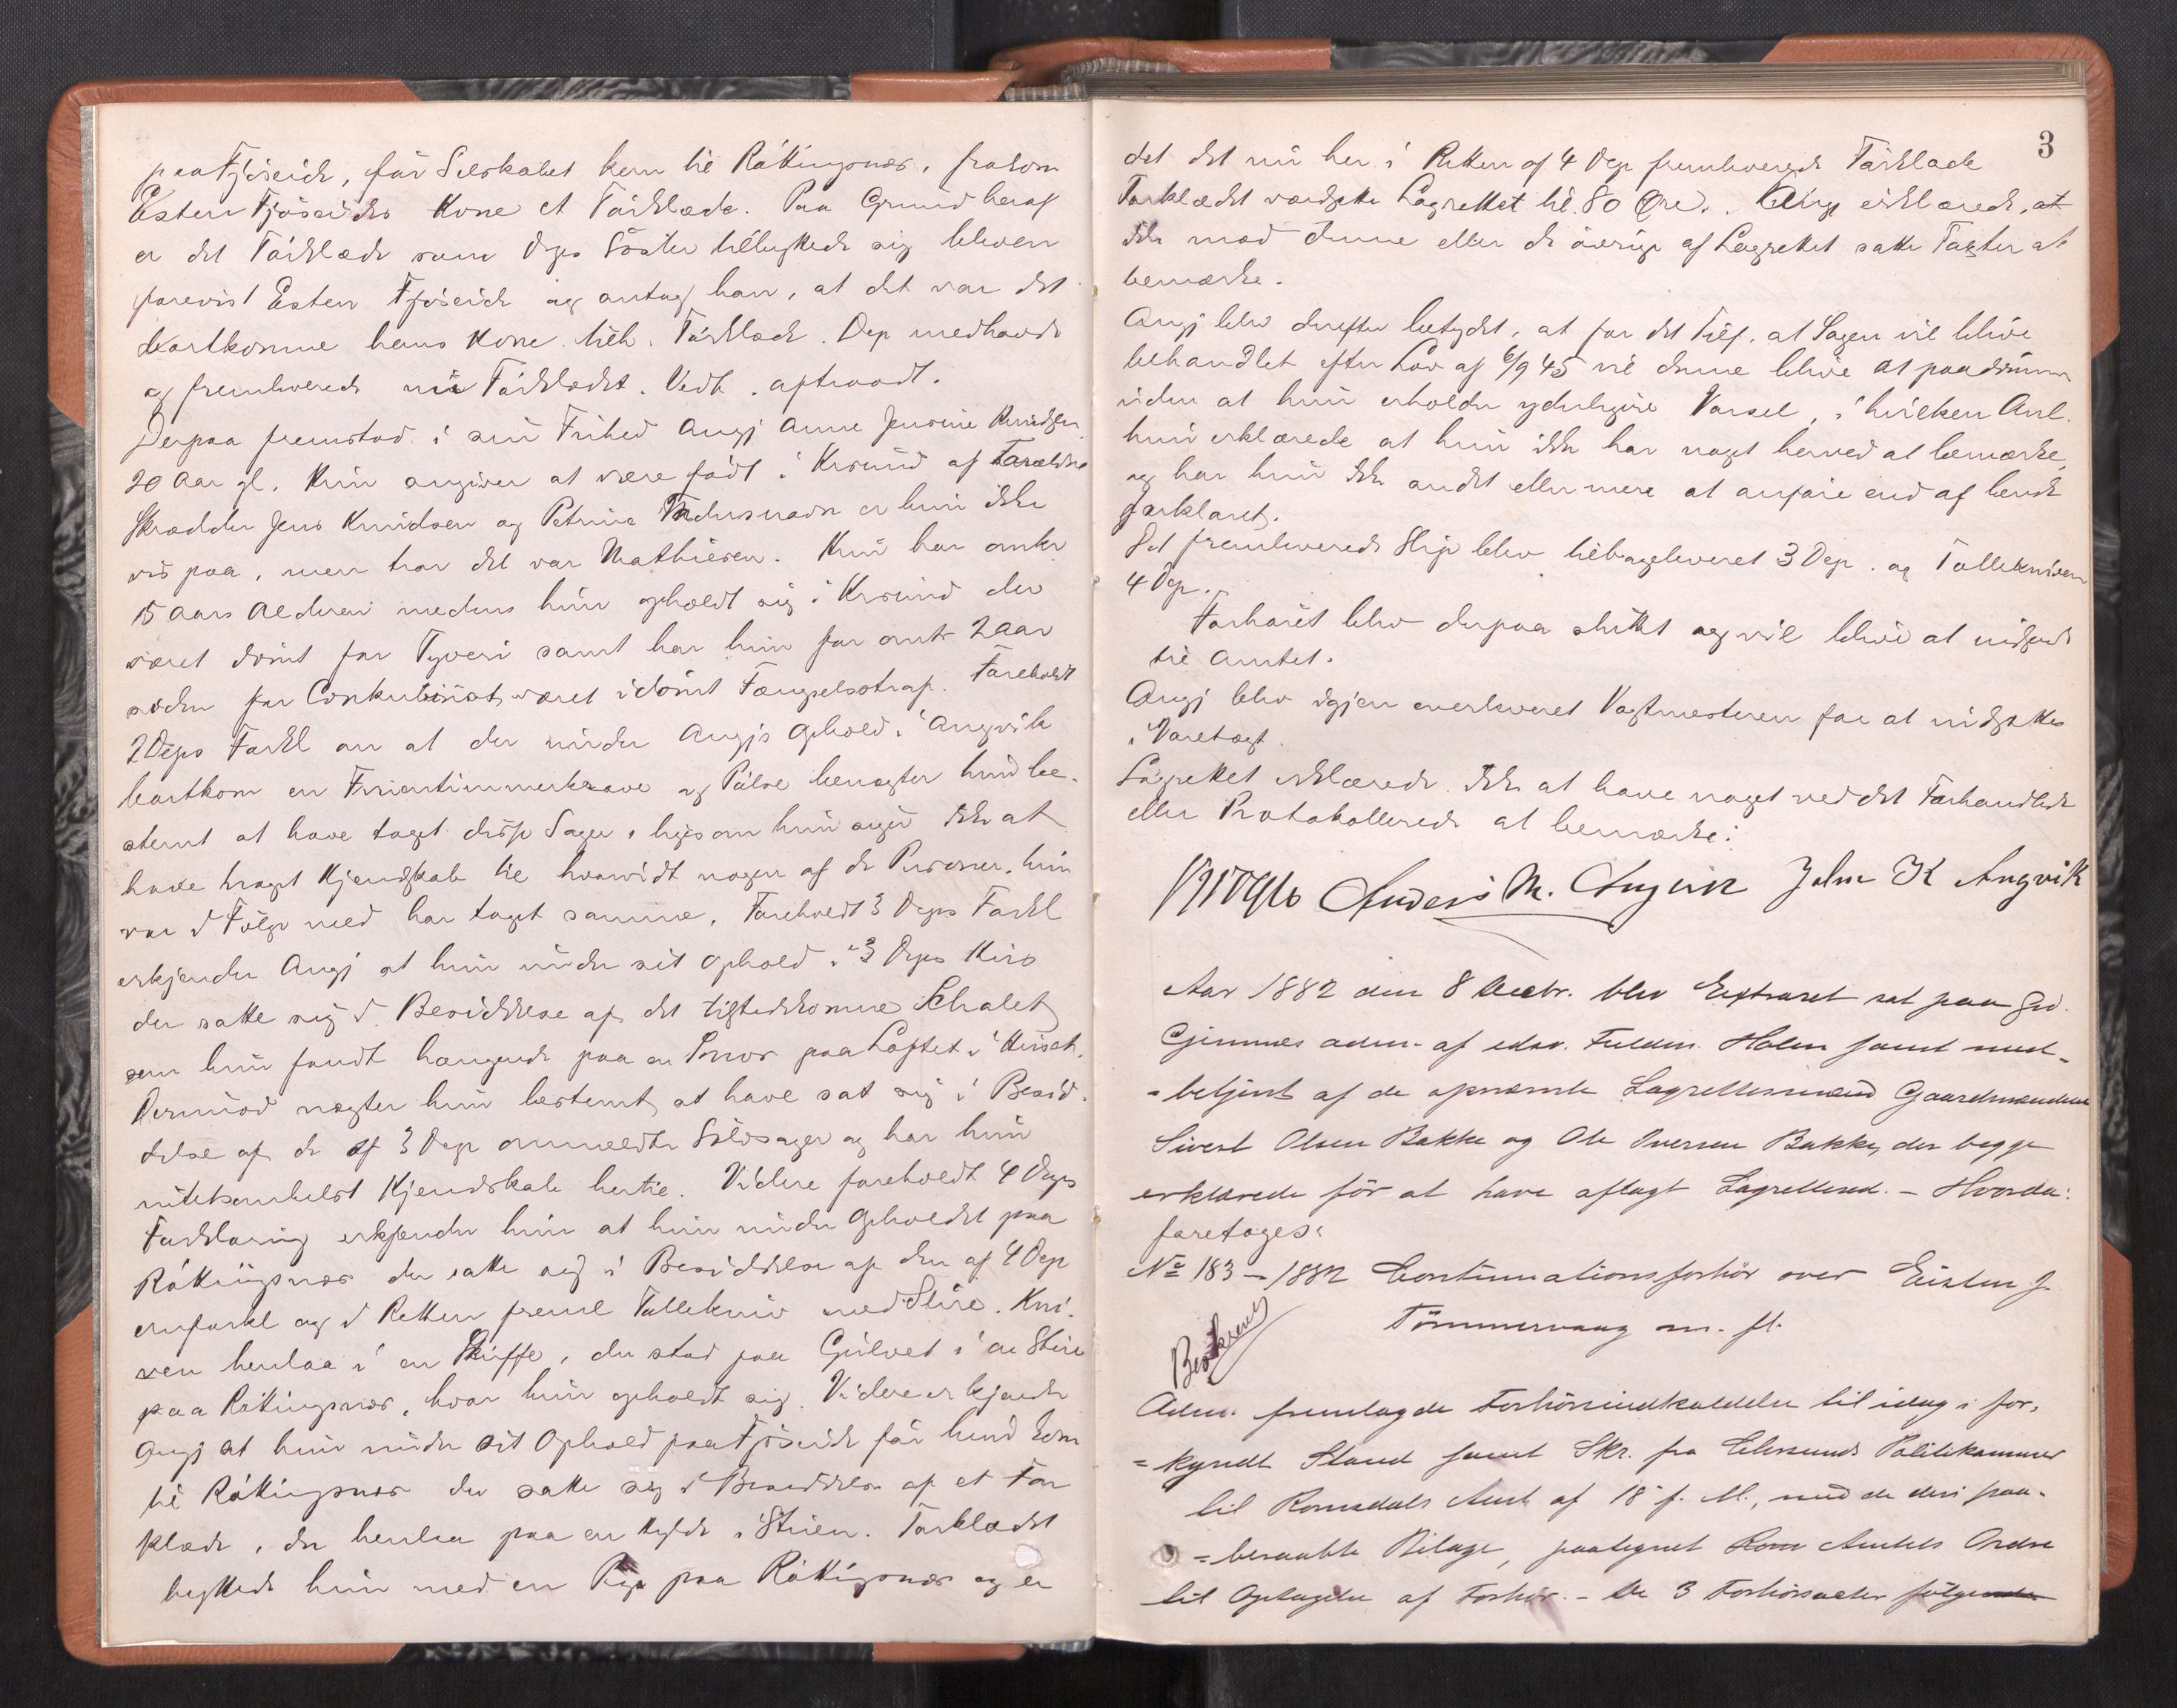 paa Fjöseide, før Selskabet kom til Røttingsnæs, frakom
Esten Fjøseides Kone et Tørklæde. Paa Grund heraf
er det Tørklæde som Deps Søster tilbyttede sig bleven
forevist Esten Fjøseide og antog han, at det var det
bortkomne hans Kone tilh. Tørklæde. Dep medhavde
og fremleverede nu Tørklædet. Vedt. aftraadt.
Derpaa fremstod i sin Frihed Angj Anne Jensine Knudsen
20 Aar gl. Hun angiver at være født i Krsund af Forældre
Skrædder Jens Knudsen og Petrine
vis paa, men tror det var Mathiesen. Hun har omkr
15 Aars Alderen medens hun opholdt sig i Krsund der
været dømt for Tyveri samt har hun for omtr 2 Aar
siden for Conkubinat været idømt Fængselsstraf. Foreholdt
2 Deps Forkl om at der under Angjs Ophold i Angvik
bortkom en og Pølse benægter hun be-
stemt at have taget disse Sager, ligesom hun siger ikke at
have noget Kjendskab til hvorvidt nogen af de Personer, hun
var i Følge med har taget samme. Foreholdt 3 Deps Forkl
erkjender Angj at hun under sit Ophold i 3 Deps Hus
der satte sig i Besiddelse af det Schalet
som hun fandt hængende paa en paa Loftet i Huset.
Derimod nægter hun bestemt at have sat sig i Besid-
delse af de af 3 Dep anmeldte Sølvsager og har hun
intetsomhelst Kjendskab hertil. Videre foreholdt 4 Deps
Forklaring erkjender hun at hun under Opholdet paa
Røttingsnæs der satte sig i Besiddelse af den af 4 Dep
omforkl og i Retten freml Tollekniv med Slire. Kni-
ven henlaa i en Skuffe, der stod paa Gulvet i en Stue
paa Røttingsnæs, hvor hun opholdt sig. Videre erkjender
Angj at hun under sit Ophold paa Fjøseide før hun kom
til Røttingsnæs der satte sig i Besiddelse af et Tør
klæde, der henlaa paa en Hylde i Stuen. Tørklædet
byttede hun med en Pige paa Røttingsnæs og er
3
det det nu her i Retten af 4 Dep fremleverede Tørklæde
Tørklædet værdsatte Lagrettet til 80 Øre. Angj erklærede, at
ikke mod denne eller de øvrige af Lagrettet satte Taxter at
bemærke.
Angj blev derefter betydet, at for det Tilf. at Sagen vil blive
behandlet efter Lov af 6/9 45 vil denne blive at paadømme
uden at hun erholder yderligere Varsel, i hvilken Anl.
hun erklærede at hun ikke har noget herved at bemærke
og har hun ikke andet eller mere at anføre end af hende
forklaret.
Det fremleverede blev tilbageleveret 3 Dep. og Tollekniven
4 Dep.
Forhøret blev derpaa sluttet og vil blive at udskrive
til Amtet.
Angj blev igjen overleveret Vagtmesteren for at indsættes
i Varetægt.
Lagrettet erklærede ikke at have noget ved det Forhandlede
eller Protokollerede at bemærke:
Anders M. Angvik John K Angvik
Aar 1882 den 8 Decbr. blev Extraret sat paa Grd.
Gjemnes adm. af edsv. Fuldm. Holm samt med-
-betjent af de opnævnte Lagrettesmænd Gaardmændene
Sivert Olsen Bakke og Ole Iversen Bakke, der begge
erklærede før at have aflagt Lagrettesed. - Hvorda:
foretoges:
No 183 - 1882 Continuationsforhør over Eisten J.
Tømmervaag m. fl.
Adm. fremlagde Forhørsindkaldelse til idag i for-
=kyndt Stand samt Skr. fra Chrsunds Politikammer
til Romsdals Amt af 18 f. M., med de deri paa-
=beraabte Bilage, paategnet Rom Amtets Ordre
til Optagelse af Forhør. - De 3 Forhørsacter følgende